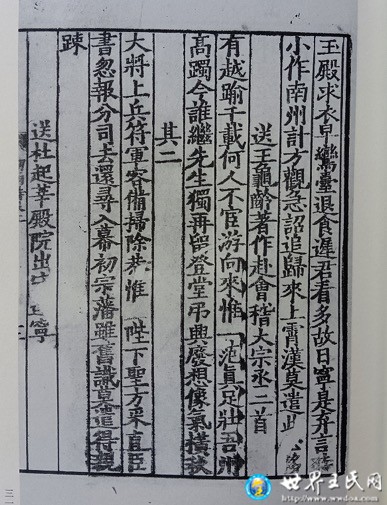 玉殿求衣早鸞臺退食遲君看多故日寧是弃言
小作南州計方觀急詔追歸來上霄漢莫遣此
送王龜齡著作赴會稽大宗丞二首
有越踰千載何人不宦游向來惟范眞足壯吾州
高躅今誰繼先生獨再留登堂弔興廢想像氣橫秋
其二
大將上兵符軍容備掃除恭惟陛下聖方采直臣
書忽報分司去還尋入幕初宗藩雖舊識莫遣得親
踈
送杜起莘殿院出 寧
三
世界王氏网
www.wwdoa.com